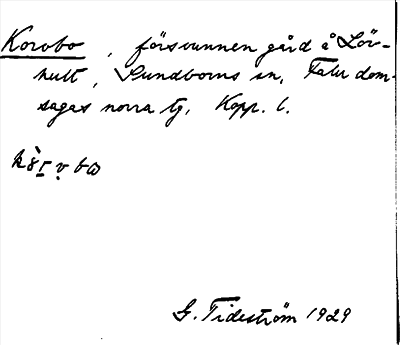 Korobo, försvunnen gård å Löv-
hult, Sundborns sn, Falu dom-
sagas norra tg, Kopp. l.
G. Tideström 1929